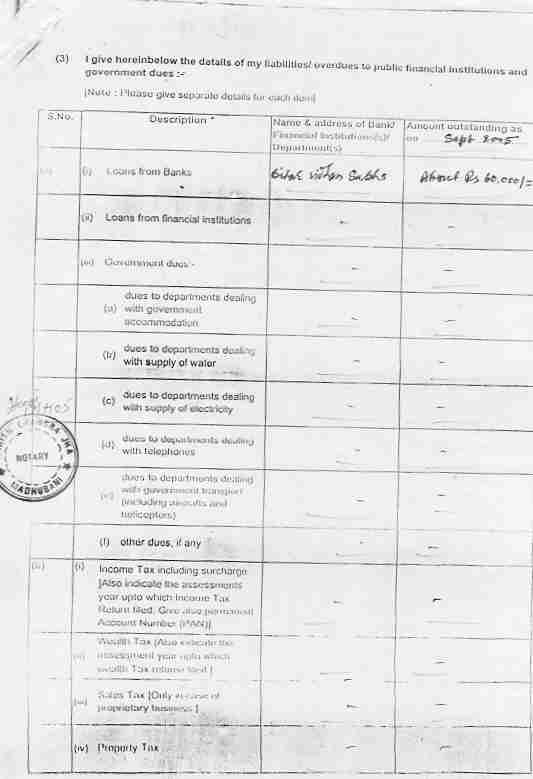 (3) I give hereinbelow the details of my liabilities/ overdues to public financial institutions and
government dues :-
[Note : Please give separate details for each item]
S.No. Description * Name & address of Bank/
Financial Institutions(s)/
Department(s) Amount outstanding as
on Sept 2005
(i) Loans from Banks Bihar Vidhan Sabha About Rs 60,000/=
(ii) Loans from financial institutions - -
(iii) Government dues:- - -
(a) dues to departments dealing
with government
accommodation - -
(b) dues to departments dealing
with supply of water - -
(c) dues to departments dealing
with supply of electricity - -
(d) dues to departments dealing
with telephones - -
(e) dues to departments dealing
with government transport
(including aircrafts and
helicopters) - -
(f) other dues, if any - -
NOTARY
MADHUBANI
(ii) (i) Income Tax including surcharge
[Also indicate the assessments
year upto which Income Tax
Return filed. Give also permanent
Account Number (PAN)] - -
Wealth Tax [Also indicate the
(ii) assessment year upto which
wealth Tax returns filed.] - -
(iii) Sales Tax [Only in case of
proprietary business.] - -
(iv) Property Tax - -